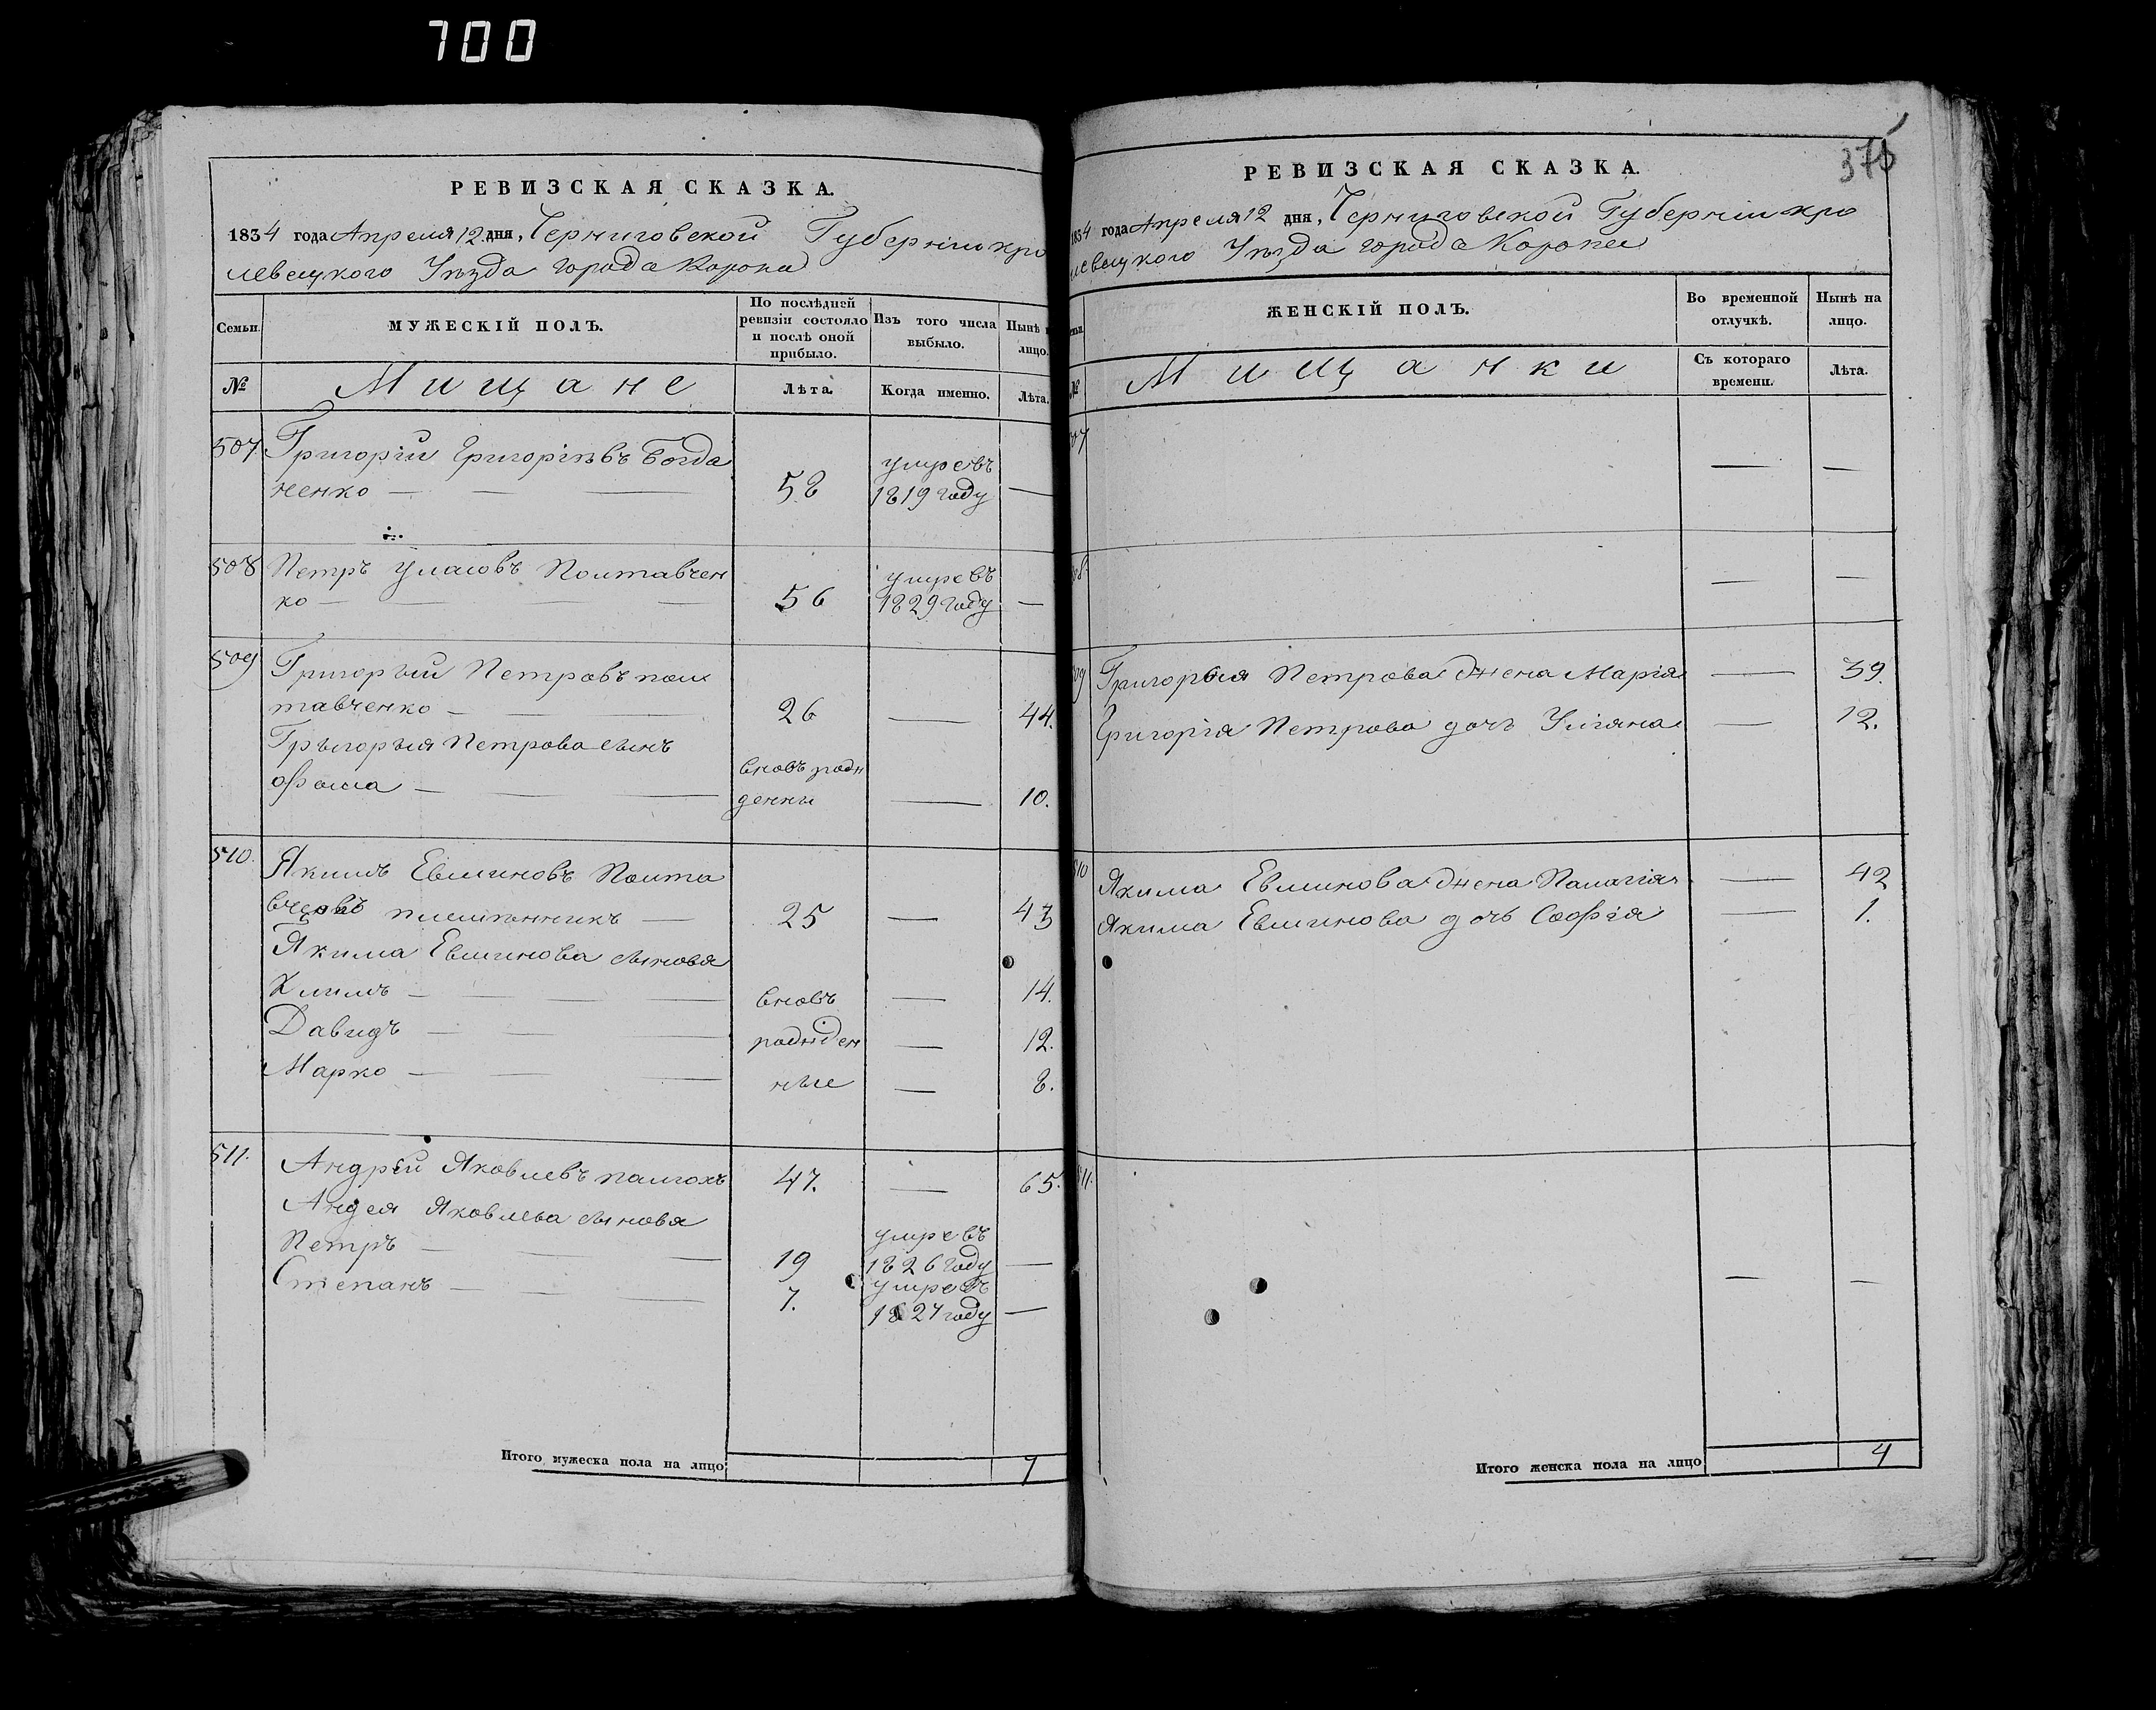 700
РЕВИЗСКАЯ СКАЗКА.
1834 года Апреля 12 дня, Черниговской Губерніи кро
левецкого Уѣзда города Коропа
Семьи.
МУЖЕСКІЙ ПОЛЪ.
По послѣдней ревизіи состояло и послѣ оной прибыло.
Изъ того числа выбыло.
Нынѣ
лицо.
№
Мищане
Лѣта.
Когда именно.
Лѣта.
507. Григорій Григоріевъ Богда
ненко — 58 умревъ 1819 году —
508 Петръ Полтавчен
ко — 56 умревъ 1829 году —
509 Григорый Петровъ пол
тавченко — 26 — 44.
Грыгорыя Петрова сынъ
Фома — вновь рож
денны — 10.
510. Якимъ Евминовъ Полта
племянникъ — 25 — 43
Якима Евминова сыновя
Климъ — вновь — 14.
Давидъ — рожден — 12.
Марко — ные — 8.
511. Андрей Яковлевъ 47. — 65.
Андея Яковлева сыновя
Петръ — 19 умревъ 1826 году —
Степанъ — 7. умревъ 1827 году —
Итого мужеска пола на лицо 7
375
РЕВИЗСКАЯ СКАЗКА.
1834 года Апреля 12 дня, Черниговской Губерніи кро
левецкого Уѣзда города Коропа
ЖЕНСКІЙ ПОЛЪ.
Во временной отлучкѣ.
Нынѣ на лицо.
№
Мищанки
Съ котораго времени.
Лѣта.
507 — —
508. — —
509 Григорыя Петрова жена Марія — 39.
Григорія Петрова дочъ Уліяна — 12.
510 Якима Евминова жена Палагія — 42
Якима Евминова дочь Софія — 1.
511. — —
Итого женска пола на лицо 4